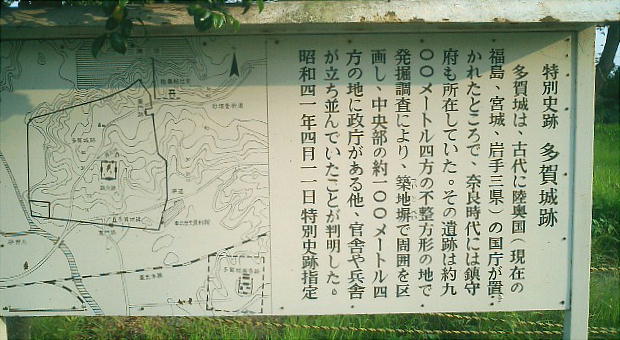 特別史跡 多賀城跡
多賀城は、古代に陸奥国（現在の
福島、宮城、岩手三県）の国庁が置
かれたところで、奈良時代には鎮守
府も所在していた。その遺跡は約九
〇〇メートル四方の不整方形の地で
発掘調査により、築地塀で周囲を区
画し、中央部の約一〇〇メートル四
方の地に政庁がある他、官舎や兵舎
が立ち並んでいたことが判明した。
昭和四一年四月一一日特別史跡指定
多賀城跡